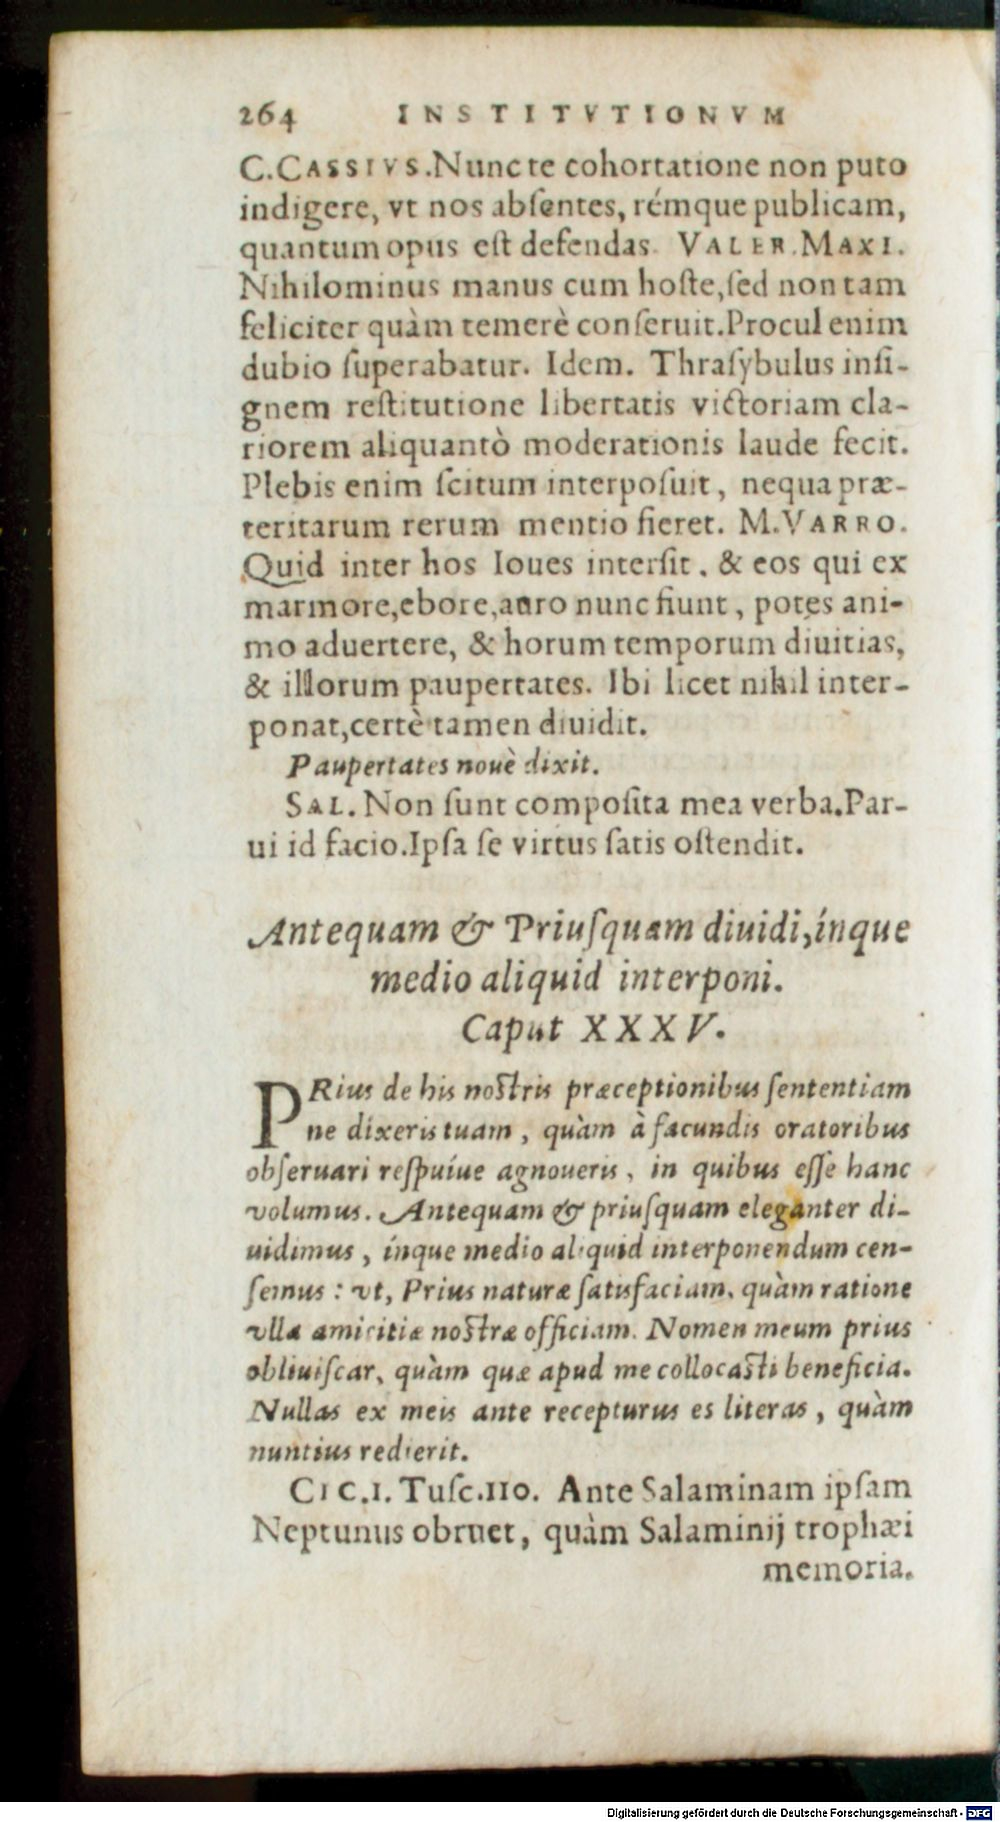 264 INSTITVTIONVM
C. CASSIVS. Nunc te cohortatione non puto
indigere, vt nos absentes, rémque publicam,
quantum opus est defendas. VALER. MAXI.
Nihilominus manus cum hoste, sed non tam
feliciter quàm temerè conseruit. Procul enim
dubio superabatur. Idem. Thrasybulus insi-
gnem restitutione libertatis victoriam cla-
riorem aliquantò moderationis laude fecit.
Plebis enim scitum interposuit, nequa præ-
teritarum rerum mentio fieret. M. VARRO.
Quid inter hos Ioues intersit. & eos qui ex
marmore, ebore, auro nunc fiunt, potes ani-
mo aduertere, & horum temporum diuitias,
& illorum paupertates. Ibi licet nihil inter-
ponat, certè tamen diuidit.
Paupertates nouè dixit.
SAL. Non sunt composita mea verba. Par-
ui id facio. Ipsa se virtus satis ostendit.
Antequam & Priusquam diuidi, ínque
medio aliquid interponi.
Caput XXXV.
PRius de his nostris præceptionibus sententiam
ne dixeris tuam, quàm à facundis oratoribus
obseruari respuíue agnoueris, in quibus esse hanc
volumus. Antequam & priusquam eleganter di-
uidimus, ínque medio aliquid interponendum cen-
semus: vt, Prius naturæ satisfaciam, quàm ratione
vlla amicitiæ nostræ officiam. Nomen meum prius
obliuiscar, quàm quæ apud me collocasti beneficia.
Nullas ex meis ante recepturus es literas, quàm
nuntius redierit.
CIC. I. Tusc. 110. Ante Salaminam ipsam
Neptunus obruet, quàm Salaminij trophæi
memoria.
Digitalisierung gefördert durch die Deutsche Forschungsgemeinschaft - DFG